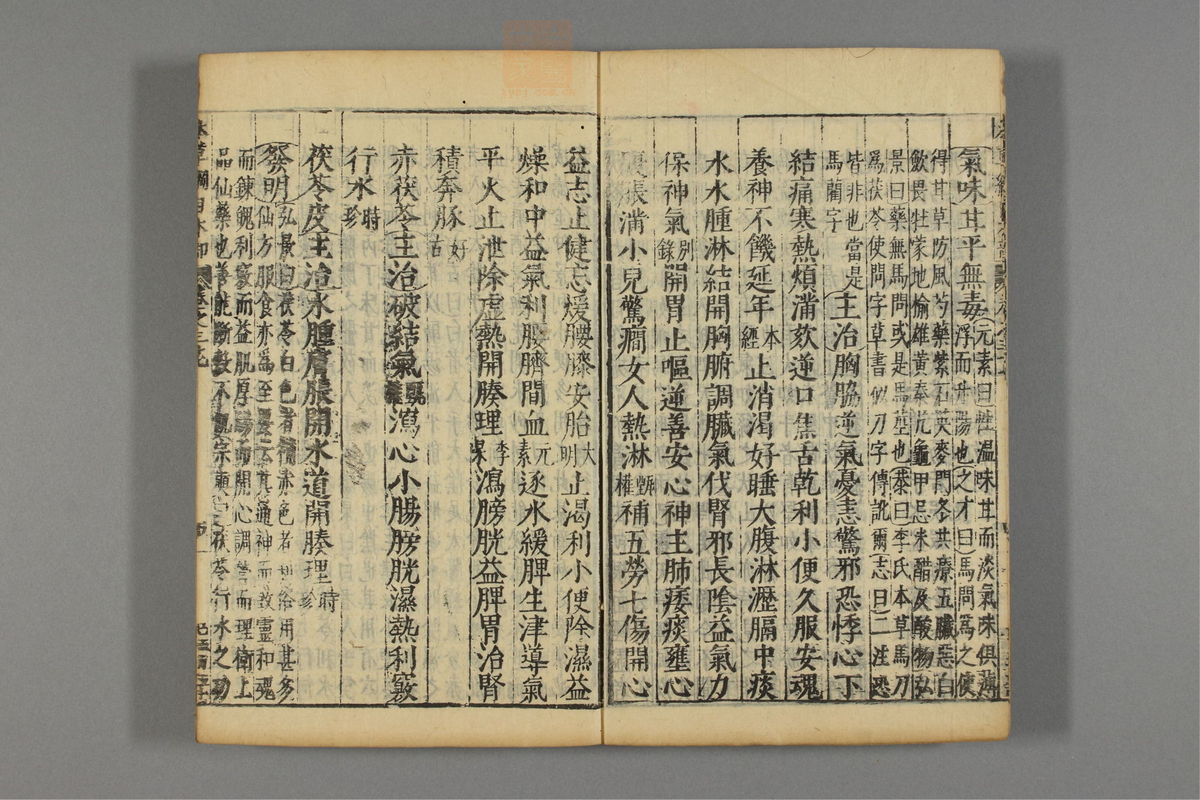 氣味甘平無毒元素曰性溫味甘而淡氣味俱薄
浮而升陽也之才曰馬間為之使
得甘草防風芍藥紫石英麥門冬共療五臟惡白
斂畏牡蒙地榆雄黃秦艽龜甲忌米醋及酸物弘
景曰藥無馬間或是馬莖也恭曰李氏本草馬刀
為茯苓使間字草書似刀字傳訛爾志曰二注恐
皆非也當是
馬藺字
主治胸脇逆氣憂恚驚邪恐悸心下
結痛寒熱煩滿欬逆口焦舌乾利小便久服安魂
養神不饑延年本經止消渴好睡大腹淋瀝膈中痰
水水腫淋結開胸腑調臟氣伐腎邪長陰益氣力
保神氣別錄開胃止嘔逆善安心神主肺痿痰壅心
腹脹滿小兒驚癇女人熱淋甄權補五勞七傷開心
益志止健忘煖腰膝安胎大明止渴利小便除濕益
燥和中益氣利腰臍間血元素逐水緩脾生津導氣
平火止泄除虛熱開腠理李杲瀉膀胱益脾胃治腎
積奔豚好古
赤茯苓主治破結氣甄權瀉心小腸膀胱濕熱利竅
行水時珍
茯苓皮主治水腫膚脹開水道開腠理時珍
發明弘景曰茯苓白色者補赤色者利俗用甚多
仙方服食亦為至要云其通神而致靈和魂
而鍊魄利竅而益肌厚腸而開心調營而理衛上
品仙藥也善能斷穀不饑宗奭曰茯苓行水之功